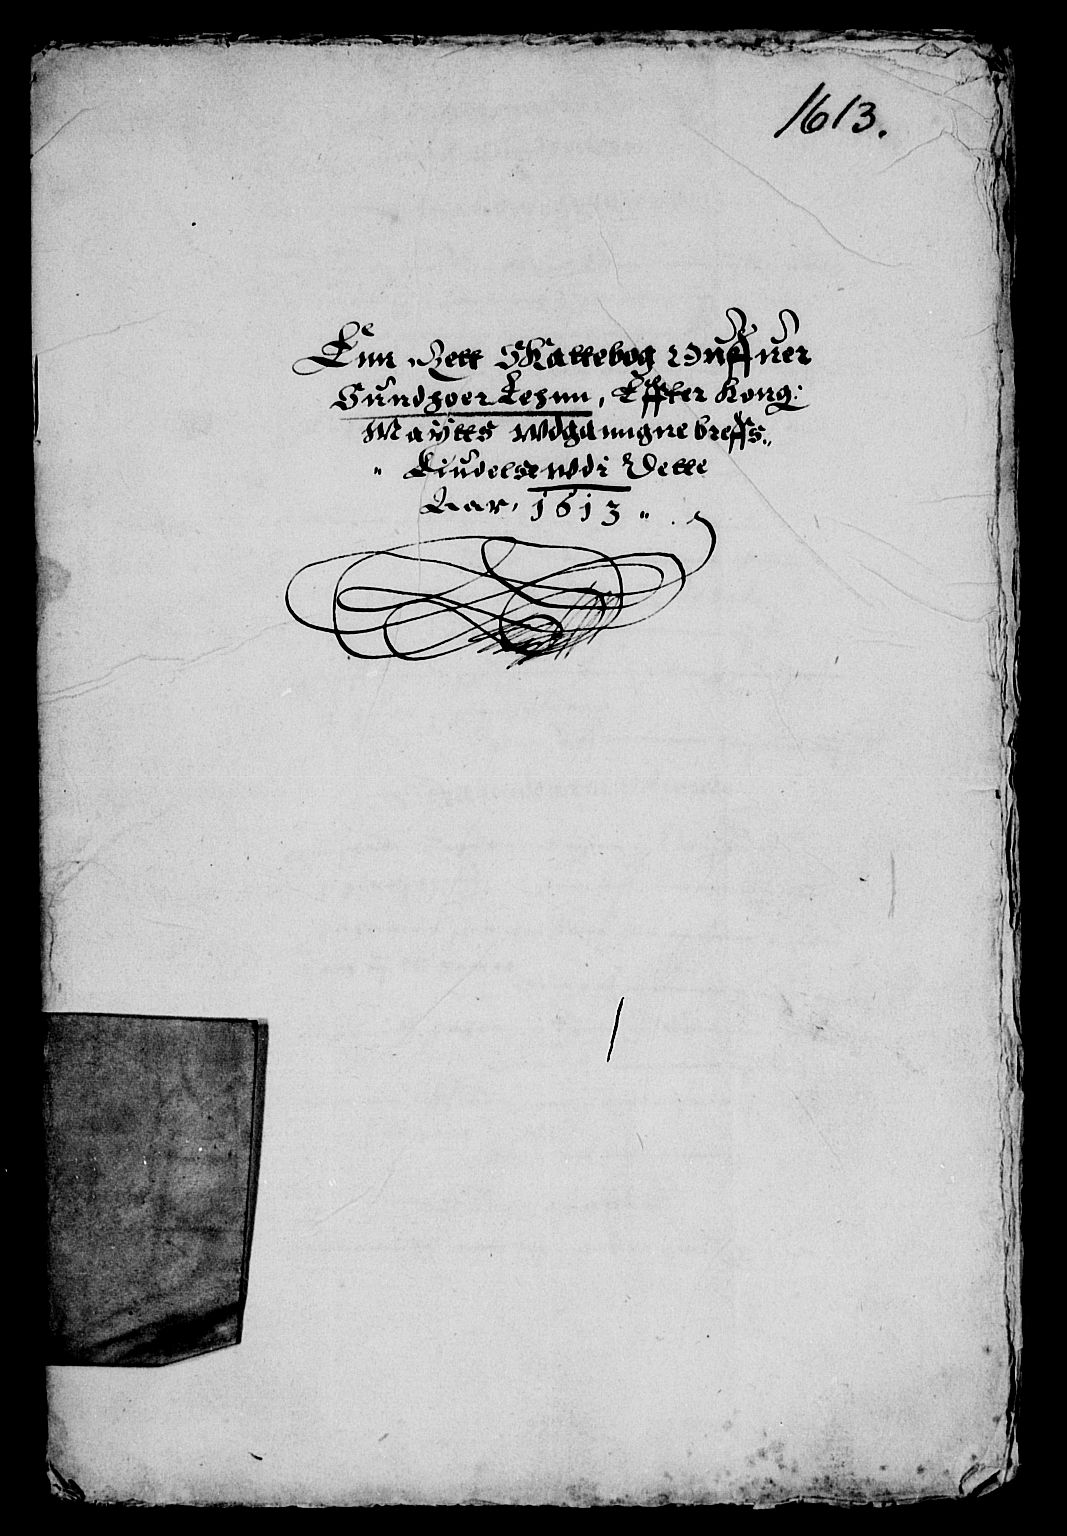 1613.
Enn Rett Skattebog Offuer
Sundhoer Lehnn, Effter Kong:
Maÿtts Wdganngne breffs
Liudelse wdi Dette
Aar, 1613